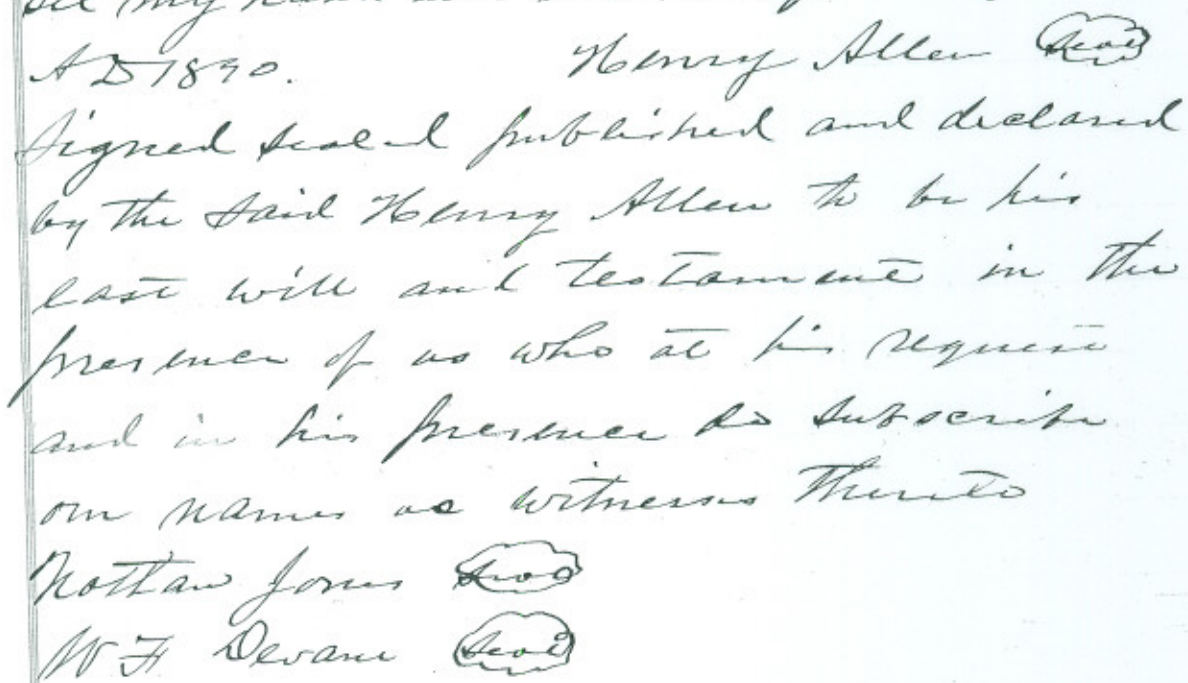 set my hand and
AD 1890. Henry Allen Seal
Signed sealed published and declared
by the said Henry Allen to be his
last will and testament in the
presence of us who at his request
and in his presence do subscribe
our names as witnesses thereto
Nathan Jones Seal
W F Devane Seal